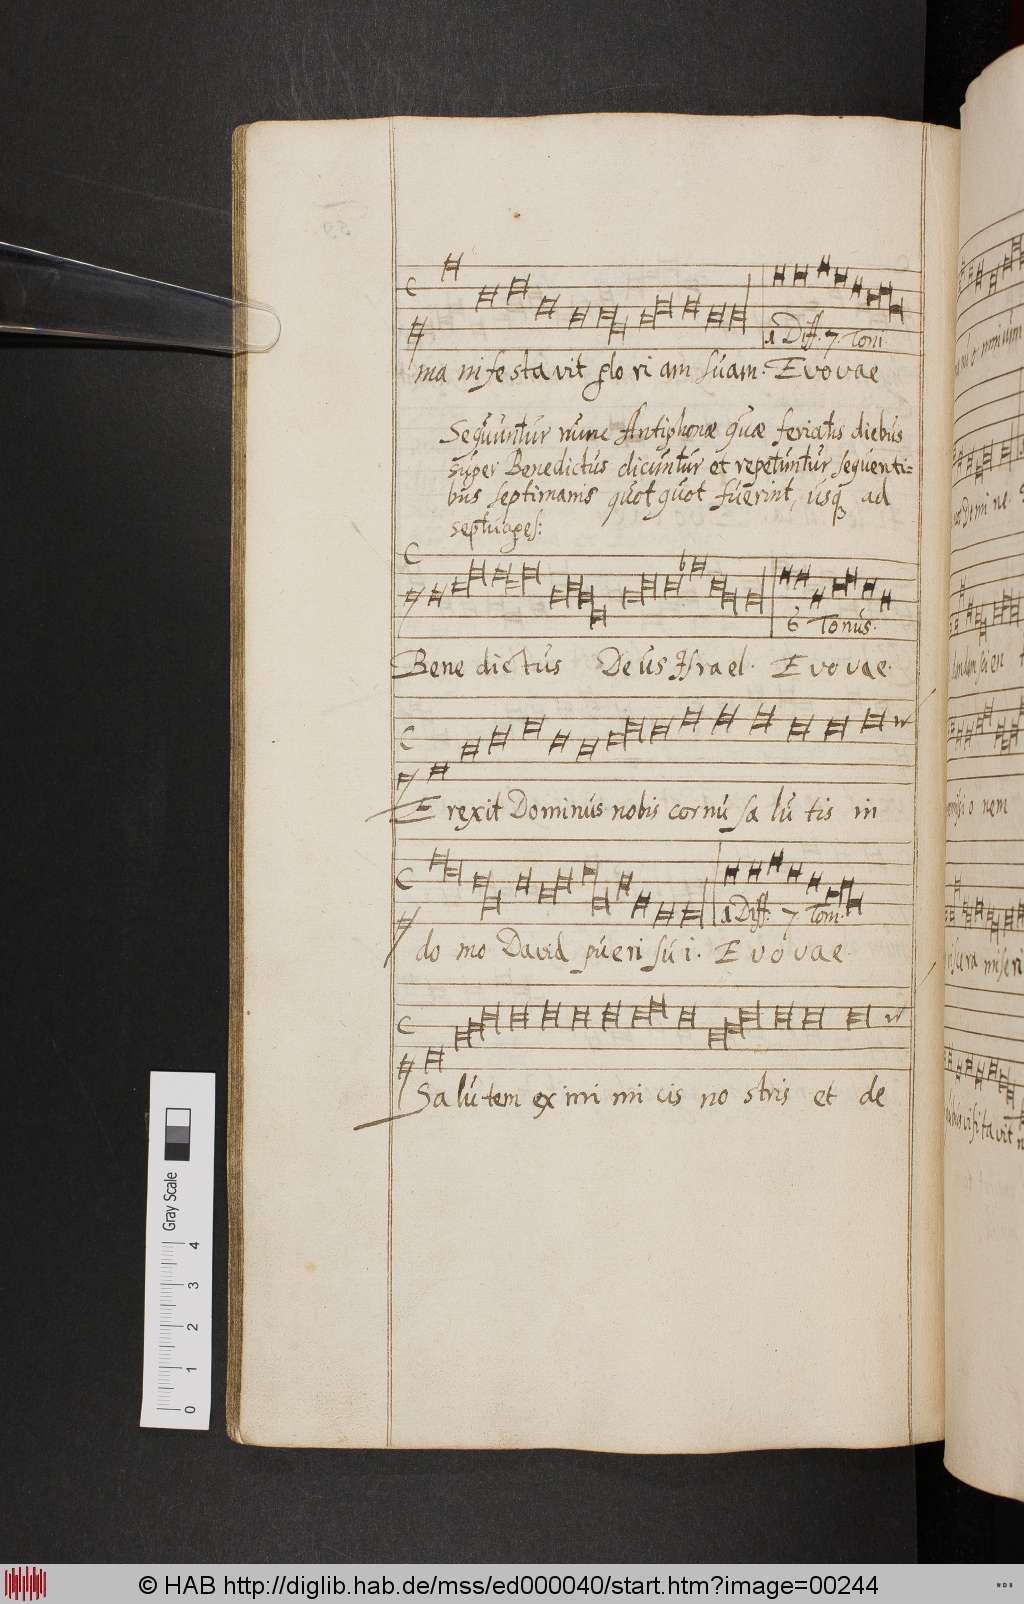 1 Diff. 7. Toni
ma nifestavit glo ri am suam. Evovae
Sequuntur nunc Antiphonæ quæ feriatis diebus
super Benedictus dicuntur et repetuntur sequenti=
bus septimanis quot quot fuerint, usq ad
septuages:
6 Tonus.
Bene dictus Deus Israel. Evovae.
E rexit Dominus nobis cornu sa lu tis in
1 Diff. 7 Toni.
do mo David pueri su i. Evovae.
Salutem ex ini mi cis no stris et de
Gray Scale
0 1 2 3 4
© HAB http://diglib.hab.de/mss/ed000040/start.htm?image=00244